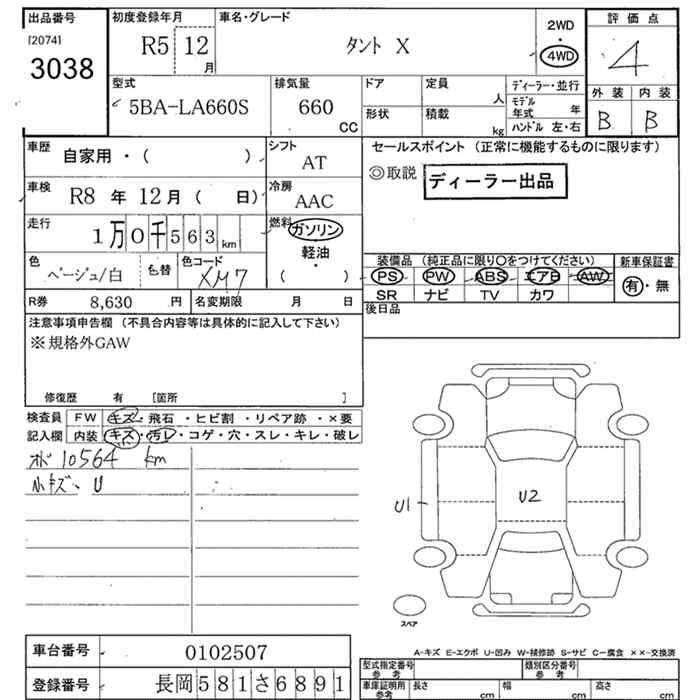 出品番号 初度登録年月 車名・グレード 2WD ・ 4WD 評価点
[2074]
3038 R5 12月 タント X 4
型式 排気量 ドア 定員 人 ディーラー・並行 外装 内装
5BA-LA660S 660 CC 形状 積載 kg モデル年式 年 B B
ハンドル 左・右
車歴 自家用・( ) シフト AT セールスポイント (正常に機能するものに限ります)
◎取説 ディーラー出品
車検 R8 年 12月 ( 日) 冷房 AAC
走行 1万0千563km 燃料 ガソリン
軽油
・
( )
色 ベージュ/白 色替 色コード XM7
装備品 (純正品に限り○をつけてください) 新車保証書
PS PW ABS エアB AW 有・無
SR ナビ TV カワ
R券 8,630 円 名変期限 月 日 後日品
注意事項申告欄 (不具合内容等は具体的に記入して下さい)
※規格外GAW
修復歴 有 [箇所 ]
検査員 FW キズ・飛石・ヒビ割・リペア跡・×要
記入欄 内装 キズ・汚レ・コゲ・穴・スレ・キレ・破レ
オド 10564 km
小キズ、U
U1 U2
スペア
A-キズ E-エクボ U-凹み W-補修跡 S-サビ C-腐食 ××-交換済
車台番号 0102507
登録番号 長岡581さ6891
型式指定番号 参考 類別区分番号 参考
車庫証明用 参考 長さ cm 幅 cm 高さ cm